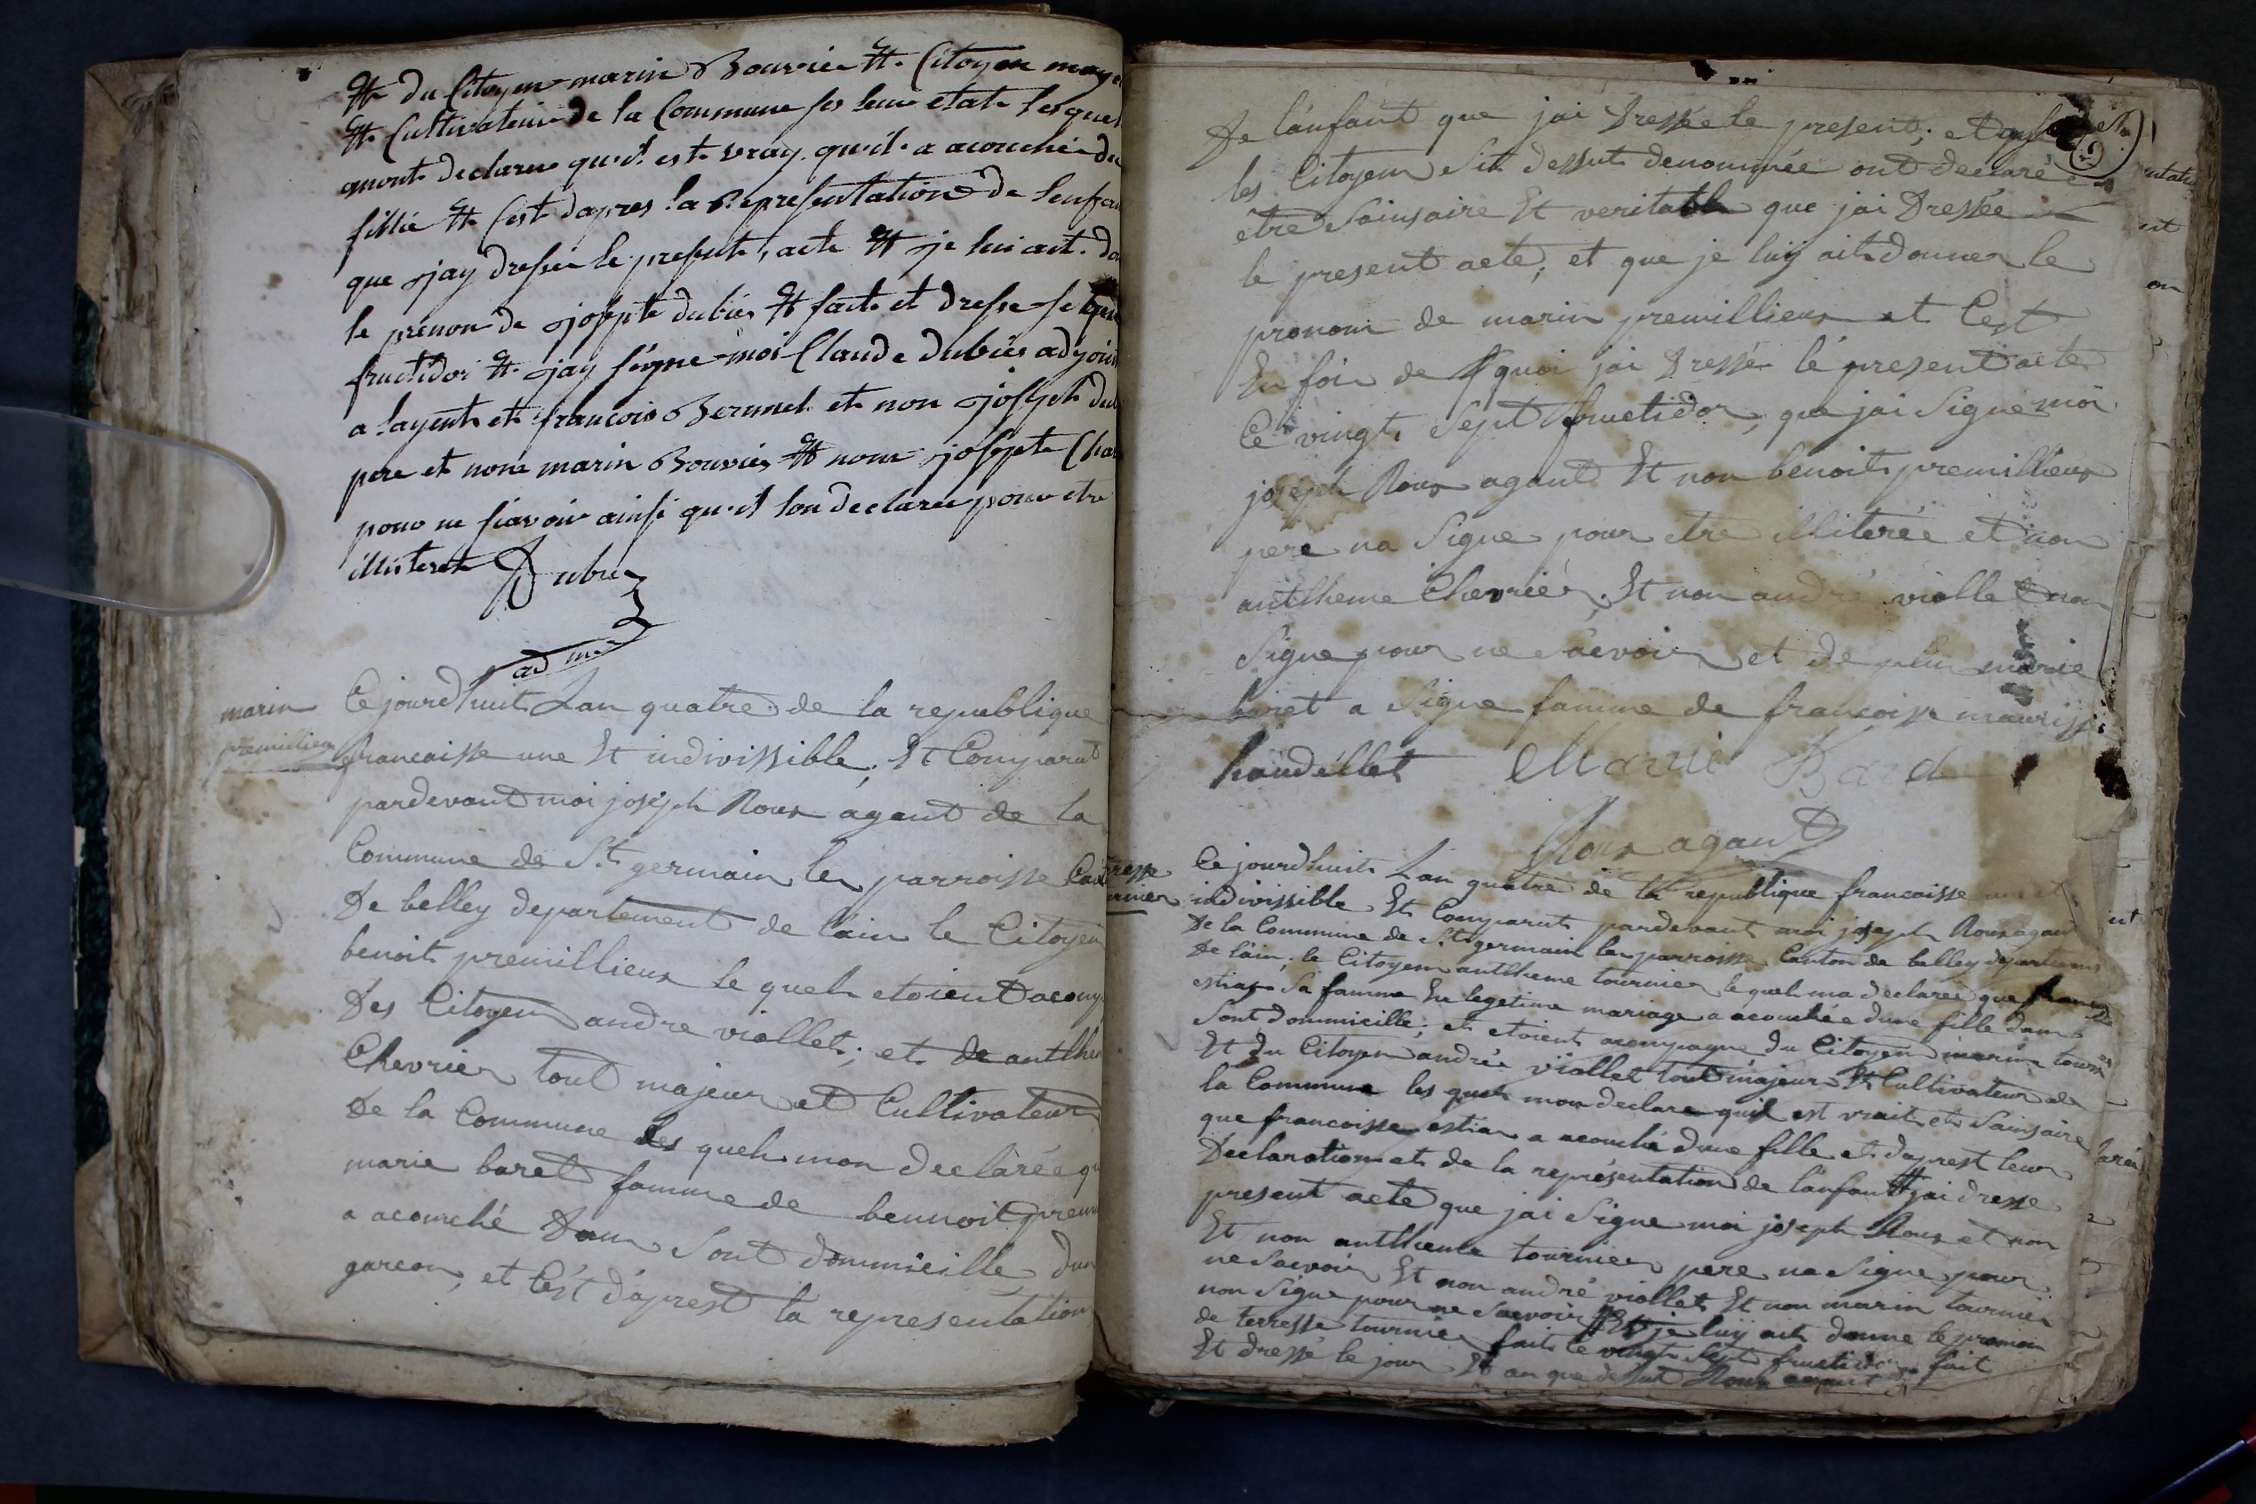 et du Citoyen marin Bouvier et Citoyen
et Cultivateur de la Commune leur etat lesquel
mont declarer qu'il est vray qu'il a acouchée du
fillie et Cest dapres la Representation de lenfan
que jay dressee le present, acte et je lui ait
le prenon de josepte dubies et fait et dresse
fructidor et jay signe moi Claude dubies adjoin
a layent et francois Berunet et non joseph
pere et non marin Bouvier et nom josepte
pour ne siavoir ainsi qu'il lon declaree pour etre
illisteret
Dubiez
marin
premillieu
Ce jourdhuit Lan quatre de la republique
francaisse une Et indivissible, Et Comparut
pardevant moi joseph Roux agant de la
Commune de St germain les parroisse
De belley departement de lain le Citoyen
benoit premillieux le quel etoient acomp
Des Citoyen andre viollet; et de
Chevrier tout majeur et Cultivateur
De la Commune les quels mon declarée
marie baret famme de bennoit prem
a acouché Dans sont dommicille, dun
garcon, et Cest daprest la representation
De lanfant que jai Dressée le present;
les Citoyen Sit dessut denommée ont declaré
etre Sainsaire Et veritable que jai Dressée
le present acte, et que je luy ait donner le
pronom de marin premillieux et Cest
En foir de quoi jai Dressé le present acte
Ce vingt Sept fructidor, que jai Signe moi
joseph Roux agant Et non benoit premillieux
pere na Signe pour etre illiterée et non
anthheme Chevrier, Et non andré viollet non
Signe pour ne Scavoir et de plus marie
baret a Signe famme de francoisse
Marie
Roux agant
Ce jourdhuit Lan quatre de la republique francaisse
indivissible Et Comparut pardevant moi joseph Roux agant
De la Commune de St germain les parroisse Canton de belley departement
De lain, le Citoyen anthheme tournier le quel ma declarée que
estian Sa famme En legetime mariage a acouchée dune fille dans
Sont dommicille, et etoient acompagne Du Citoyen marin
Et Du Citoyen andrée viollet tout majeur Et Cultivateur de
la Commune les quel mon declare quil est vrait et Sainsaire
que francoisse estian a acouché dune fille et daprest leur
Declaration et de la représentation de lanfant jai dresse
present acte que jai Signe moi joseph Roux et non
Et non anthheme tournier pere na Signe pour
ne Scavoir Et non andré viollet Et non marin tournier
non Signe pour ne Scavoir Et je luy ait donne le pronom
de terresse tournier fait ce vingt Sept fructidor fait
Et dressé le jour Et an que dessut Roux agant